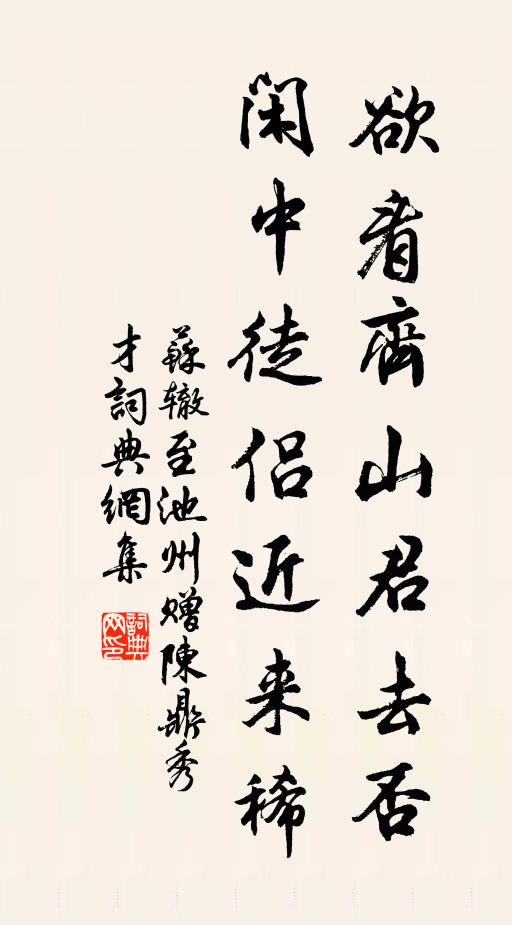 欲看齊山君去否
閑中徒侣近来稀
蘇辙至池州赠陳鼎秀
才詞典網集
詞典
网印